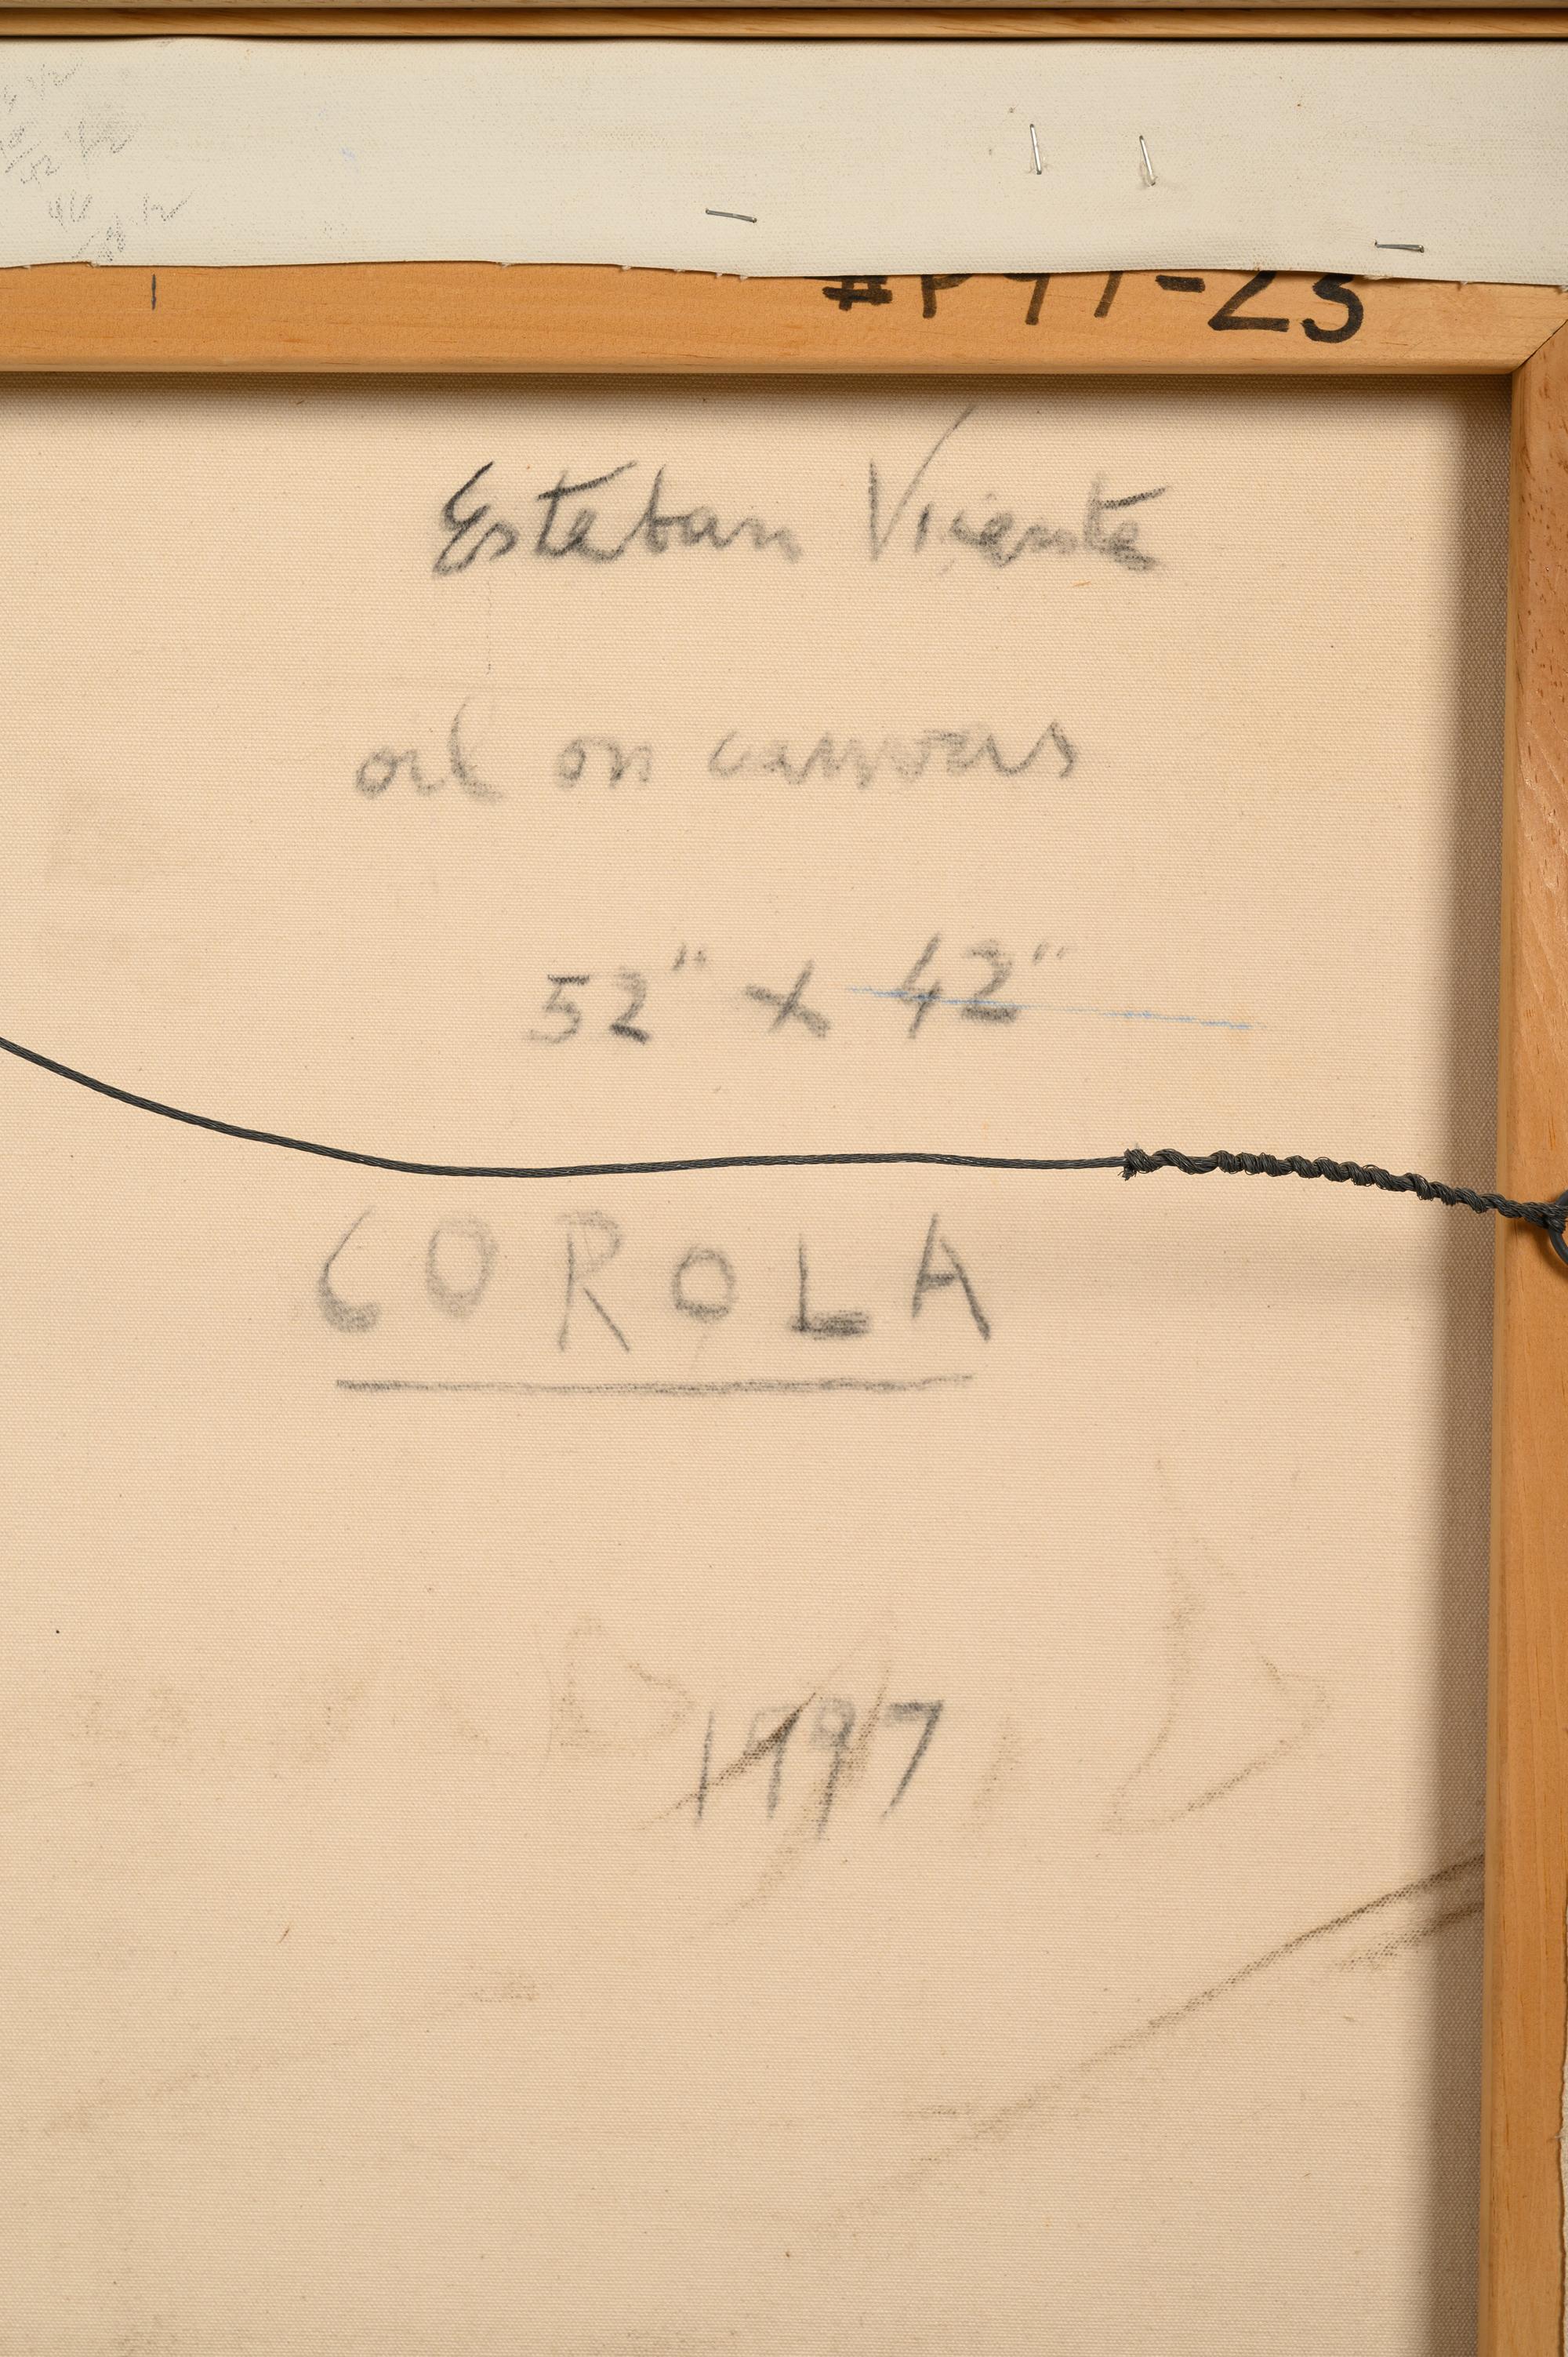 #P97-23
Esteban Vicente
oil on canvas
52" x 42"
COROLA
1997